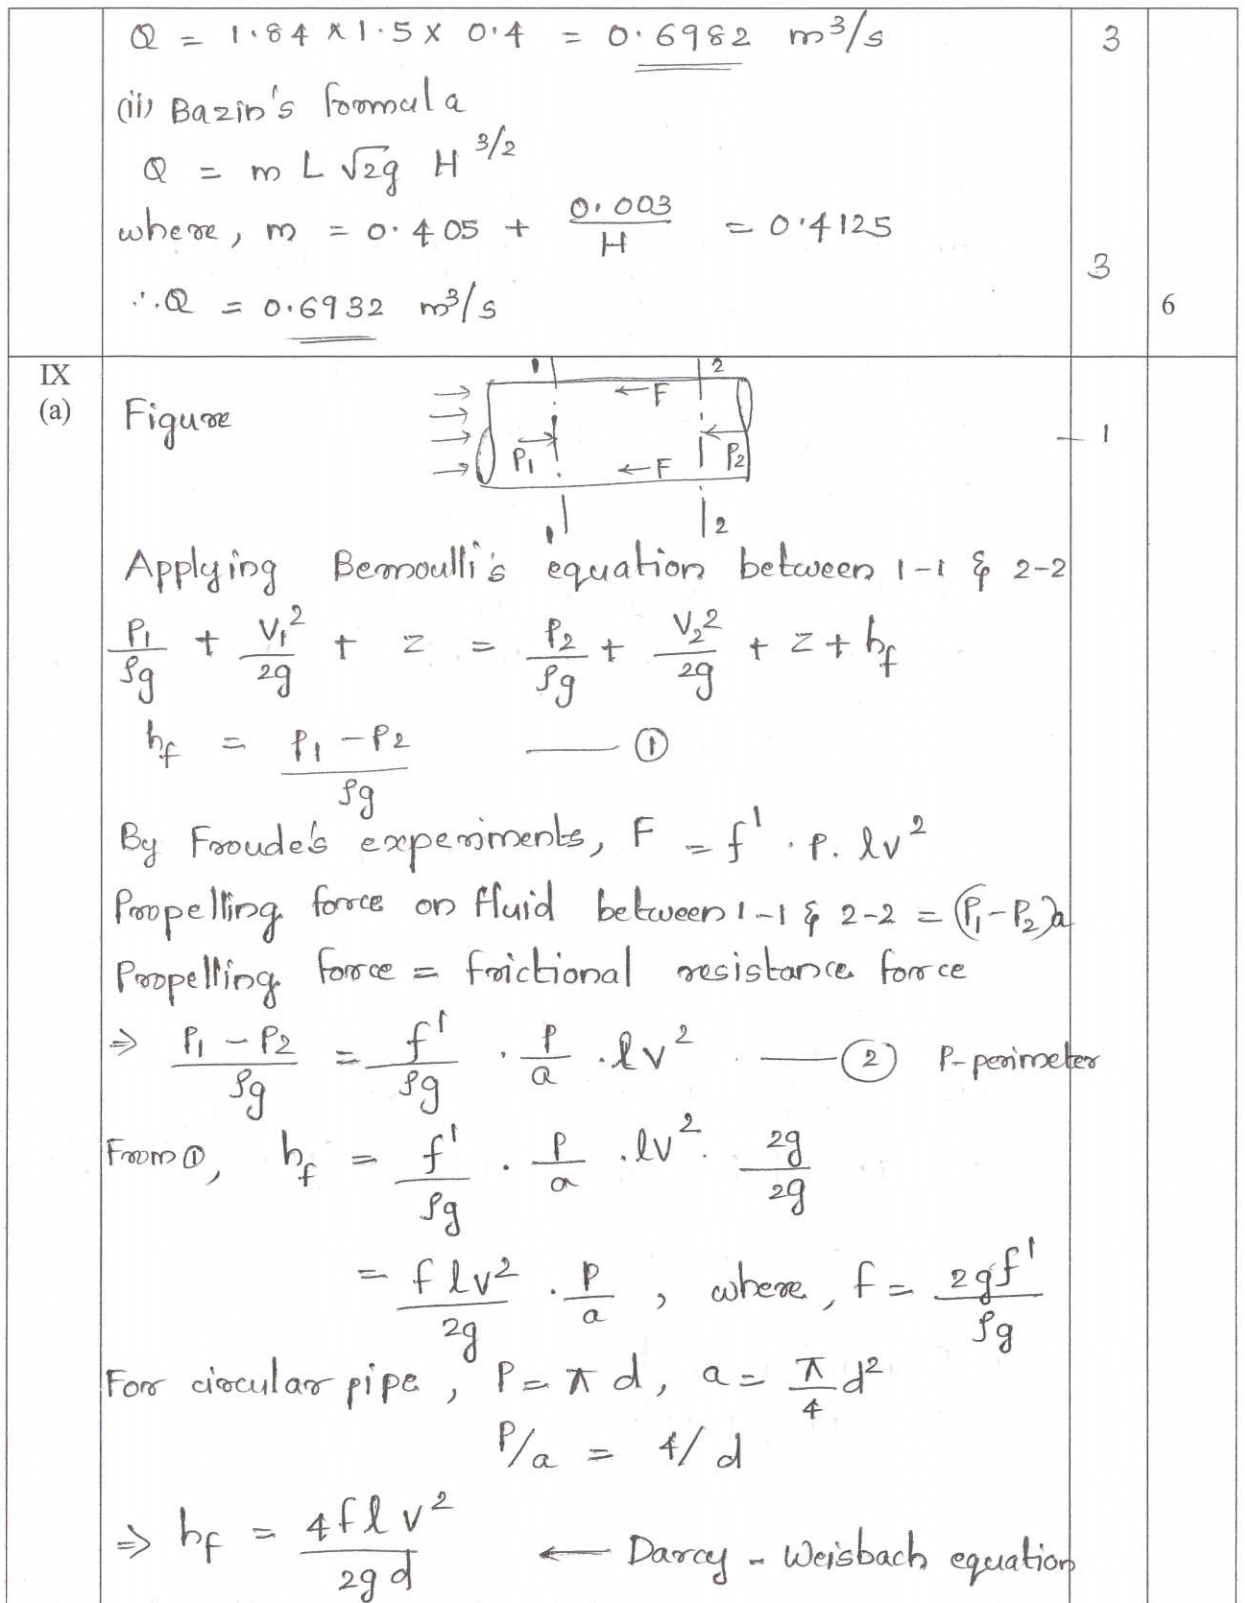 Q = 1.84 x 1.5 x 0.4 = 0.6982 m³/s 3
(ii) Bazin's formula
Q = m L √2g H^3/2
where, m = 0.405 + 0.003/H = 0.4125
3
∴ Q = 0.6932 m³/s 6
IX
(a) Figure
1 2
← F
P₁ → ← P₂
← F
1 2
1
Applying Bernoulli's equation between 1-1 & 2-2
P₁/ρg + V₁²/2g + z = P₂/ρg + V₂²/2g + z + hf
hf = P₁ - P₂/ρg —— ①
By Froude's experiments, F = f' . P. lv²
Propelling force on fluid between 1-1 & 2-2 = (P₁-P₂)a
Propelling force = frictional resistance force
⇒ P₁ - P₂/ρg = f'/ρg . P/a . lv² —— ② P-perimeter
From ①, hf = f'/ρg . P/a . lv² . 2g/2g
= f lv²/2g . P/a , where, f = 2gf'/ρg
For circular pipe, P = π d, a = π/4 d²
P/a = 4/d
⇒ hf = 4flv²/2gd ← Darcy - Weisbach equation